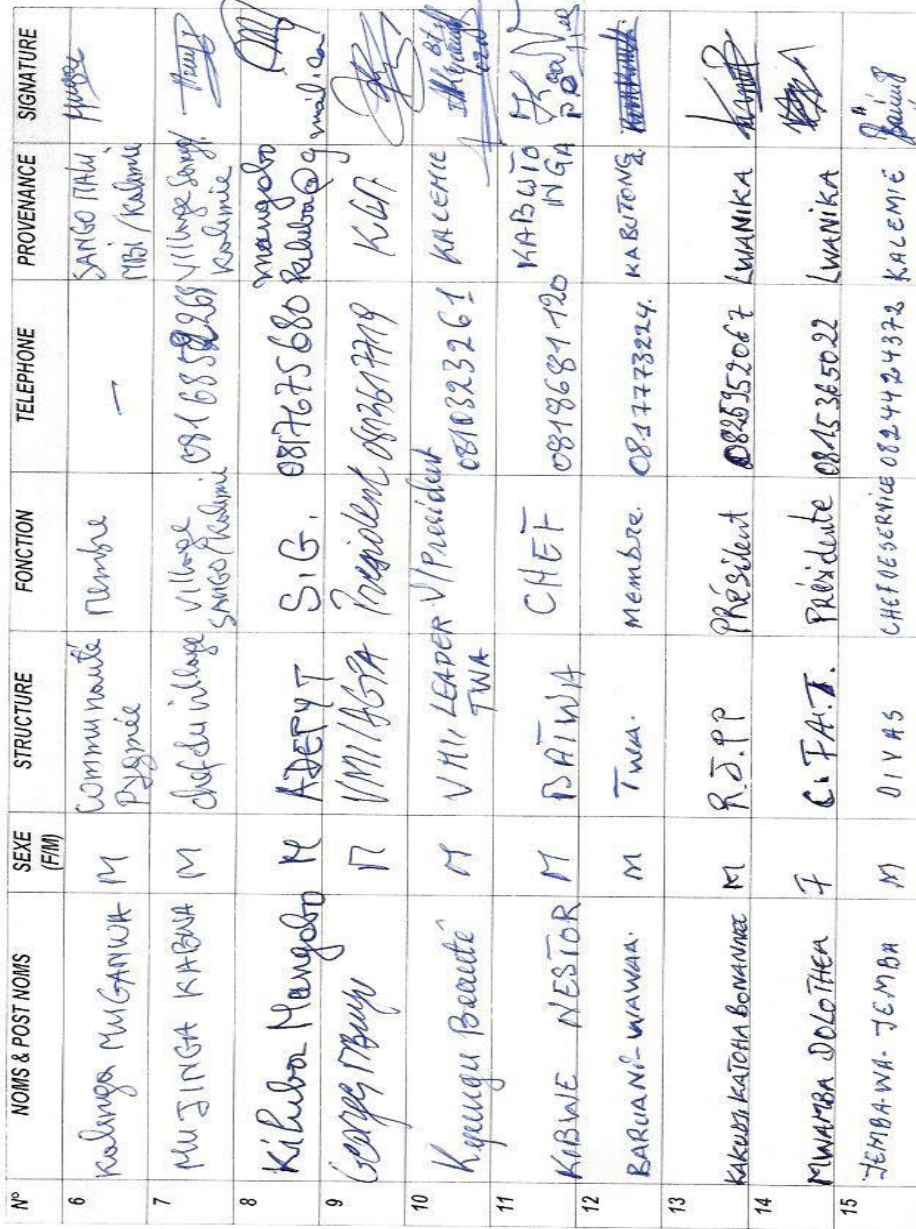 N° NOMS & POST NOMS SEXE (F/M) STRUCTURE FONCTION TELEPHONE PROVENANCE SIGNATURE
6 Kalunga MUGANWA M Communauté Pygmée membre — SANGO MALU MBI / Kalemie
7 MUJINGA KABWA M chef du village village SANGO/Kalemie Village Sango Kalemie
8 Kiluba Mangabo M S.I.G. 0817675680 mangabo kiluba@g mail.co
9 Georges M President
10 Kyungu Beauté M LEADER TWA V/President 0810323261 KALEMIE
11 KABWE NESTOR M BATWA CHEF 0818681120
12 BARUANI-WAWAA. M Twa. Membre. 0817773224.
13 M R.J.PP Président 0825952067 LWANIKA
14 MWAMBA DOLOTHEA F C.FA.T. Présidente 0815365022 LWANIKA
15 JEMBA-WA-JEMBA M DIVAS CHEF DE SERVICE 0824424372 KALEMIE